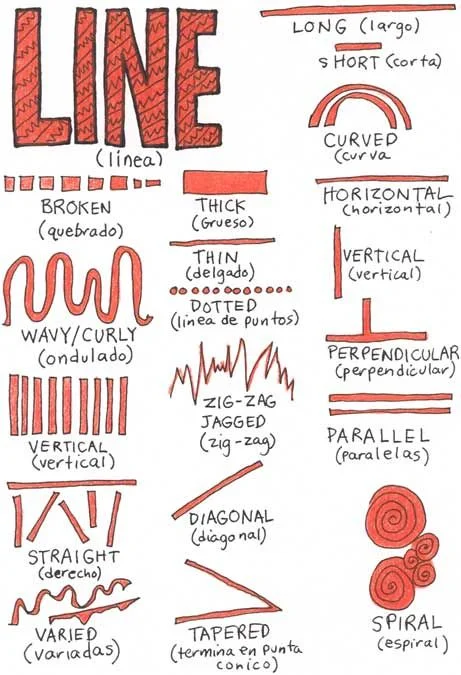 LINE
(línea)
LONG (largo)
SHORT (corta)
CURVED
(curva
BROKEN
(quebrado)
THICK
(Grueso)
HORIZONTAL
(horizontal)
THIN
(delgado)
VERTICAL
(vertical)
WAVY/CURLY
(ondulado)
DOTTED
(línea de puntos)
PERPENDICULAR
(perpendicular)
VERTICAL
(vertical)
ZIG-ZAG
JAGGED
(zig-zag)
PARALLEL
(paralelas)
STRAIGHT
(derecho)
DIAGONAL
(diagonal)
VARIED
(variadas)
TAPERED
(termina en punta
conico)
SPIRAL
(espiral)